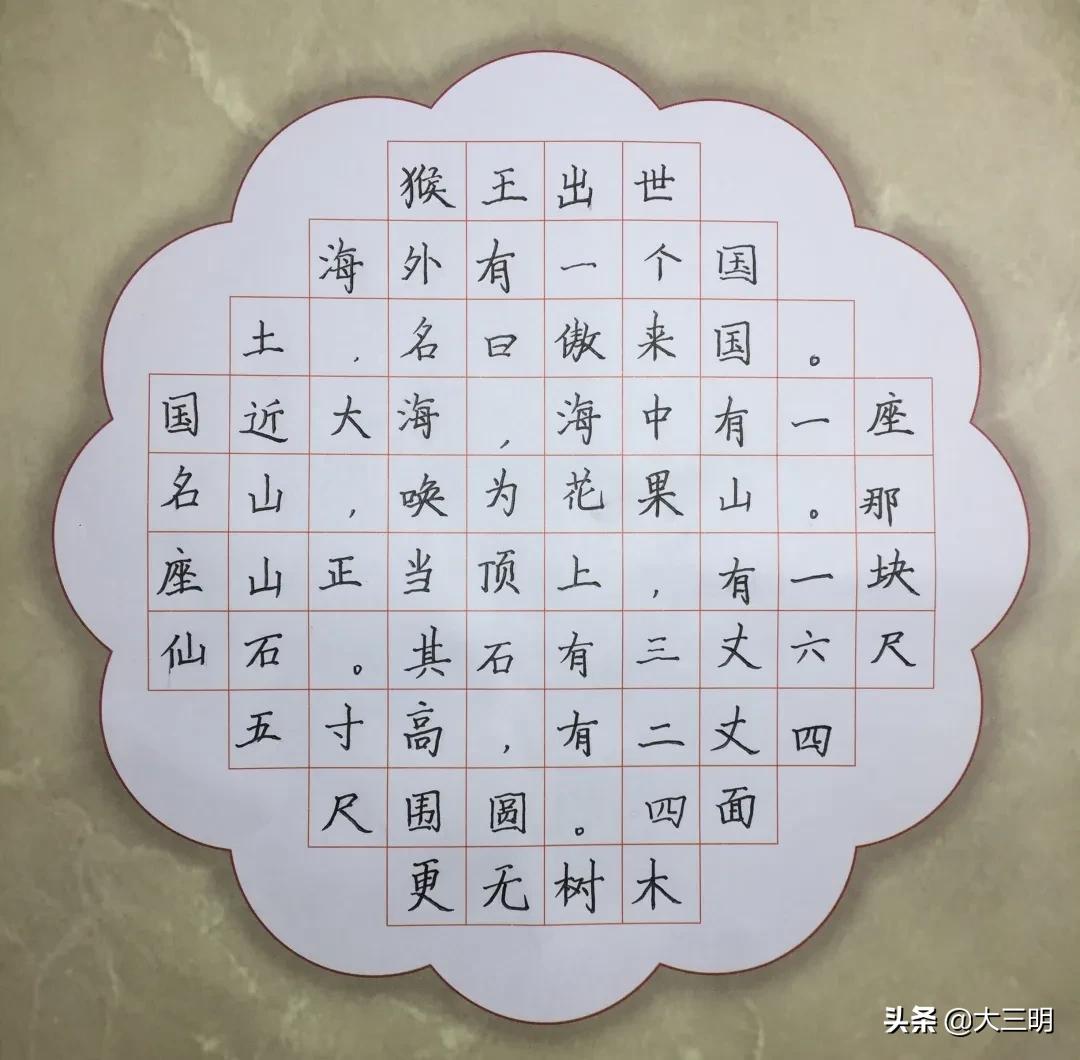 猴王出世
海外有一个国
土,名曰傲来国。
国近大海,海中有一座
名山,唤为花果山。那
座山正当顶上,有一块
仙石。其石有三丈六尺
五寸高,有二丈四
尺围圆。四面
更无树木
头条 @大三明